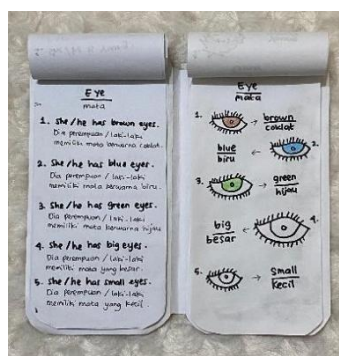 Eye
mata
1. She/he has brown eyes.
Dia perempuan / laki-laki
memiliki mata berwarna coklat.
2. She/he has blue eyes.
Dia perempuan / laki-laki
memiliki mata berwarna biru.
3. She/he has green eyes.
Dia perempuan / laki-laki
memiliki mata berwarna hijau
4. She/he has big eyes.
Dia perempuan / laki-laki
memiliki mata yang besar.
5. She/he has small eyes.
Dia perempuan / laki-laki
memiliki mata yang kecil.
Eye
mata
1. → brown
coklat
blue ← 2.
biru
3. → green
hijau
big ← 4.
besar
5. → small
kecil